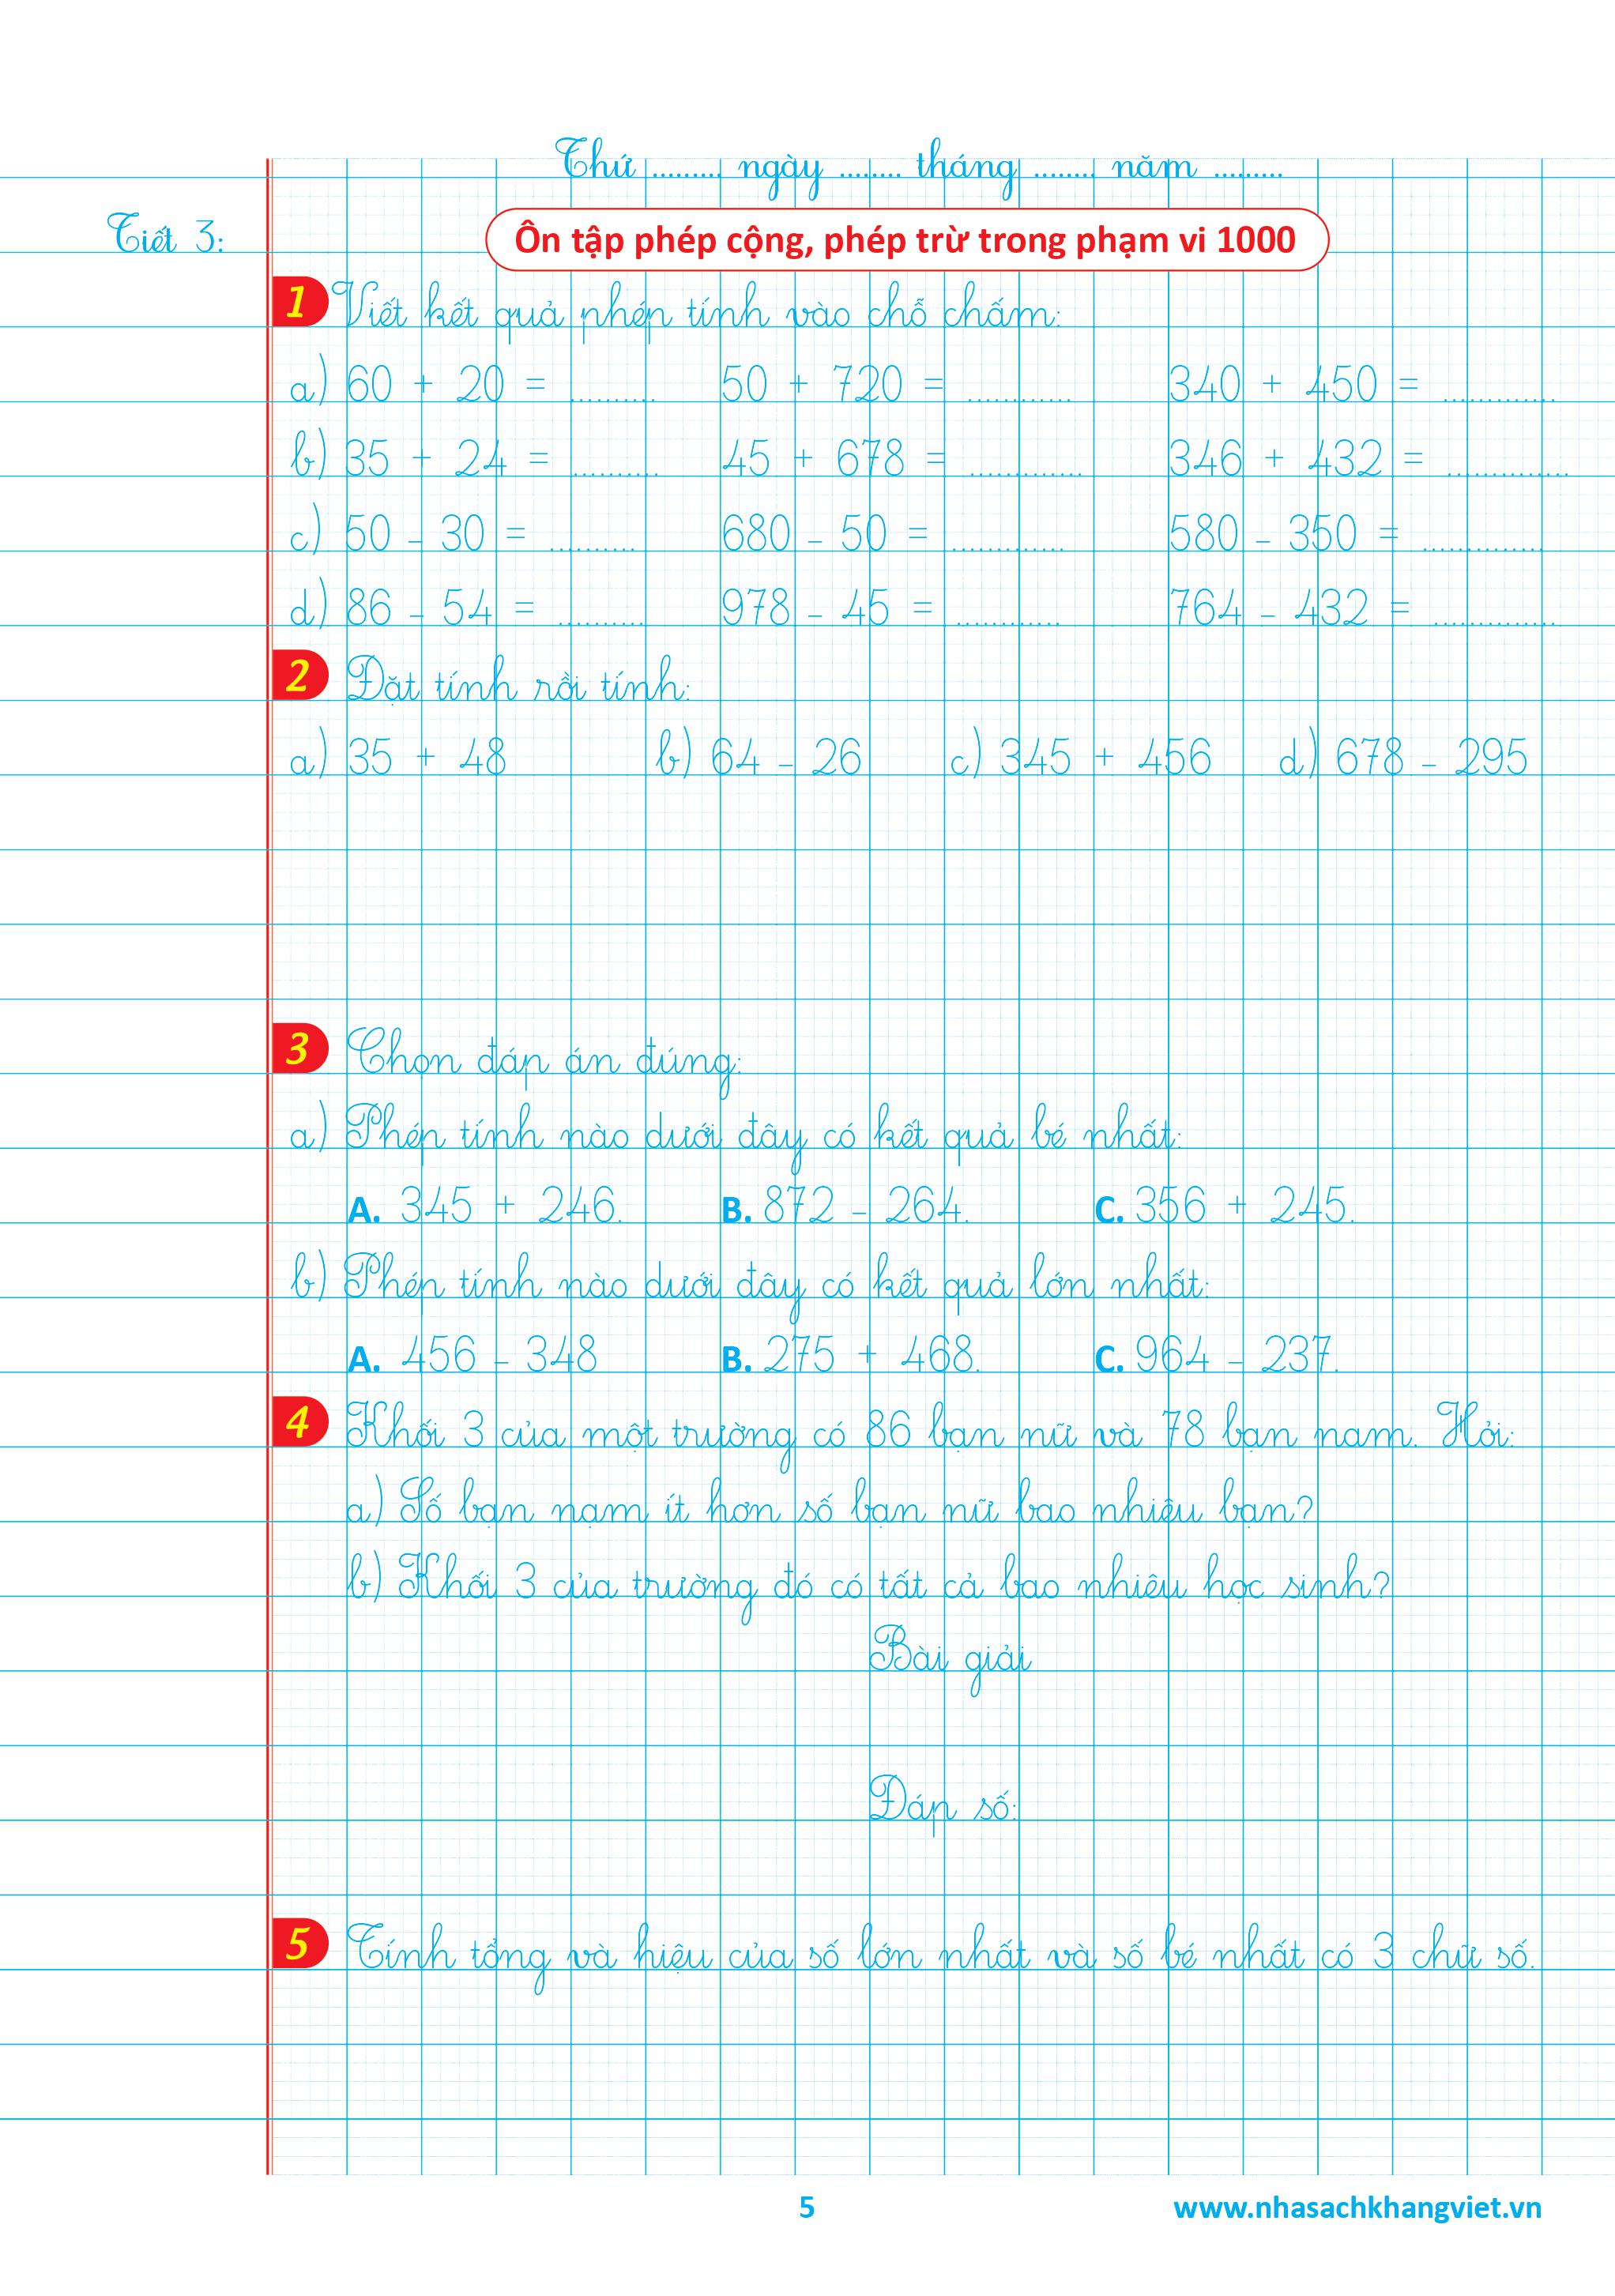 Thứ ......... ngày ........ tháng ........ năm .........
Tiết 3:
Ôn tập phép cộng, phép trừ trong phạm vi 1000
1 Viết kết quả phép tính vào chỗ chấm:
a) 60 + 20 = .......... 50 + 720 = ............ 340 + 450 = .............
b) 35 + 24 = .......... 45 + 678 = ............. 346 + 432 = ..............
c) 50 - 30 = .......... 680 - 50 = ............. 580 - 350 = ..............
d) 86 - 54 = .......... 978 - 45 = ............ 764 - 432 = ..............
2 Đặt tính rồi tính:
a) 35 + 48 b) 64 - 26 c) 345 + 456 d) 678 - 295
3 Chọn đáp án đúng:
a) Phép tính nào dưới đây có kết quả bé nhất:
A. 345 + 246. B. 872 - 264. C. 356 + 245.
b) Phép tính nào dưới đây có kết quả lớn nhất:
A. 456 - 348 B. 275 + 468. C. 964 - 237.
4 Khối 3 của một trường có 86 bạn nữ và 78 bạn nam. Hỏi:
a) Số bạn nạm ít hơn số bạn nữ bao nhiêu bạn?
b) Khối 3 của trường đó có tất cả bao nhiêu học sinh?
Bài giải
Đáp số:
5 Tính tổng và hiệu của số lớn nhất và số bé nhất có 3 chữ số.
5
www.nhasachkhangviet.vn